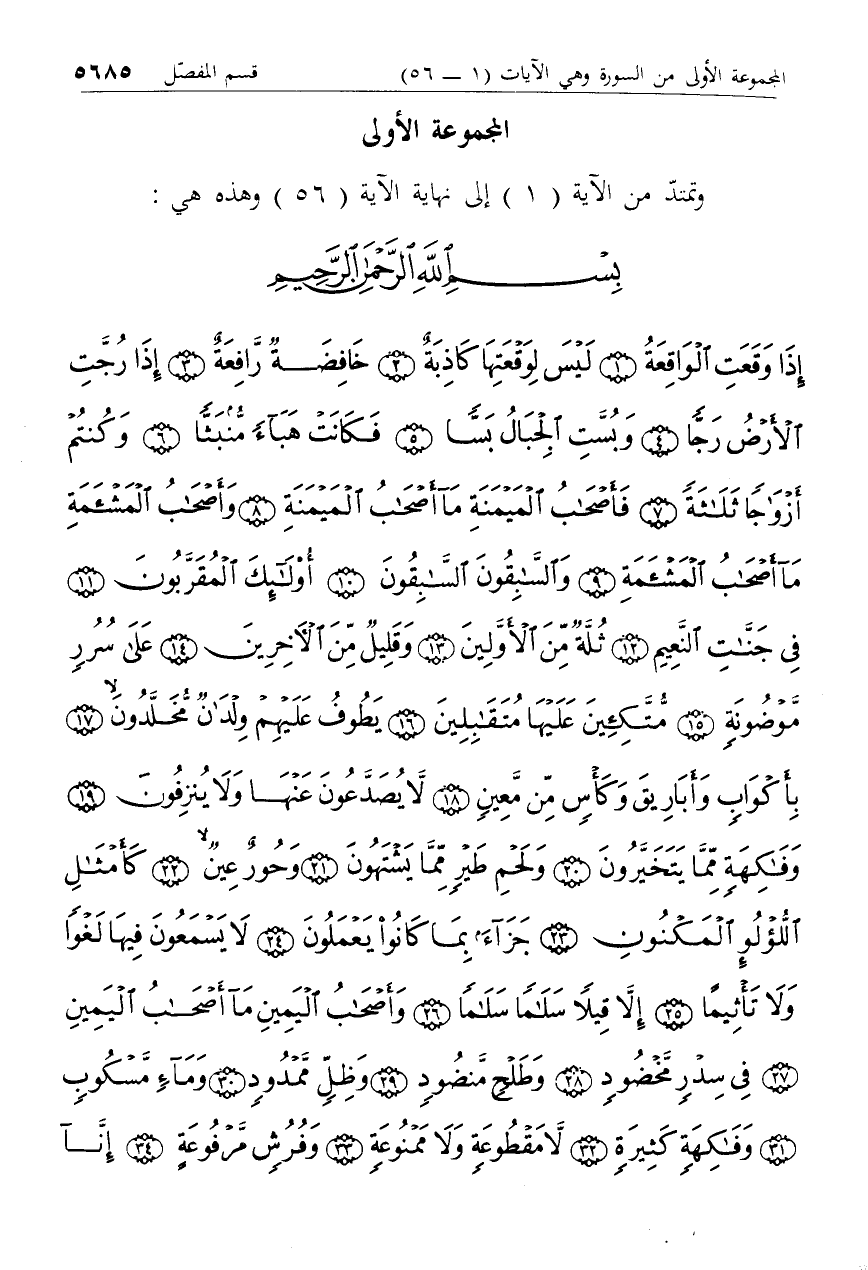 المجموعة الأولى من السورة وهي الآيات (١ – ٥٦) قسم المفصّل ٥٦٨٥
المجموعة الأولى
وتمتدّ من الآية ( ١ ) إلى نهاية الآية ( ٥٦ ) وهذه هي :
بِسْمِ ٱللَّهِ ٱلرَّحْمَٰنِ ٱلرَّحِيمِ
إِذَا وَقَعَتِ ٱلْوَاقِعَةُ ١ لَيْسَ لِوَقْعَتِهَا كَاذِبَةٌ ٢ خَافِضَةٌ رَّافِعَةٌ ٣ إِذَا رُجَّتِ
ٱلْأَرْضُ رَجًّا ٤ وَبُسَّتِ ٱلْجِبَالُ بَسًّا ٥ فَكَانَتْ هَبَآءً مُّنۢبَثًّا ٦ وَكُنتُمْ
أَزْوَٰجًا ثَلَٰثَةً ٧ فَأَصْحَٰبُ ٱلْمَيْمَنَةِ مَآ أَصْحَٰبُ ٱلْمَيْمَنَةِ ٨ وَأَصْحَٰبُ ٱلْمَشْـَٔمَةِ
مَآ أَصْحَٰبُ ٱلْمَشْـَٔمَةِ ٩ وَٱلسَّٰبِقُونَ ٱلسَّٰبِقُونَ ١٠ أُو۟لَٰٓئِكَ ٱلْمُقَرَّبُونَ ١١
فِى جَنَّٰتِ ٱلنَّعِيمِ ١٢ ثُلَّةٌ مِّنَ ٱلْأَوَّلِينَ ١٣ وَقَلِيلٌ مِّنَ ٱلْءَاخِرِينَ ١٤ عَلَىٰ سُرُرٍ
مَّوْضُونَةٍ ١٥ مُّتَّكِـِٔينَ عَلَيْهَا مُتَقَٰبِلِينَ ١٦ يَطُوفُ عَلَيْهِمْ وِلْدَٰنٌ مُّخَلَّدُونَ ۙ ١٧
بِأَكْوَابٍ وَأَبَارِيقَ وَكَأْسٍ مِّن مَّعِينٍ ١٨ لَّا يُصَدَّعُونَ عَنْهَا وَلَا يُنزِفُونَ ١٩
وَفَٰكِهَةٍ مِّمَّا يَتَخَيَّرُونَ ٢٠ وَلَحْمِ طَيْرٍ مِّمَّا يَشْتَهُونَ ٢١ وَحُورٌ عِينٌ ۙ ٢٢ كَأَمْثَٰلِ
ٱللُّؤْلُؤِ ٱلْمَكْنُونِ ٢٣ جَزَآءًۢ بِمَا كَانُوا۟ يَعْمَلُونَ ٢٤ لَا يَسْمَعُونَ فِيهَا لَغْوًا
وَلَا تَأْثِيمًا ٢٥ إِلَّا قِيلًا سَلَٰمًا سَلَٰمًا ٢٦ وَأَصْحَٰبُ ٱلْيَمِينِ مَآ أَصْحَٰبُ ٱلْيَمِينِ
٢٧ فِى سِدْرٍ مَّخْضُودٍ ٢٨ وَطَلْحٍ مَّنضُودٍ ٢٩ وَظِلٍّ مَّمْدُودٍ ٣٠ وَمَآءٍ مَّسْكُوبٍ
٣١ وَفَٰكِهَةٍ كَثِيرَةٍ ٣٢ لَّا مَقْطُوعَةٍ وَلَا مَمْنُوعَةٍ ٣٣ وَفُرُشٍ مَّرْفُوعَةٍ ٣٤ إِنَّآ